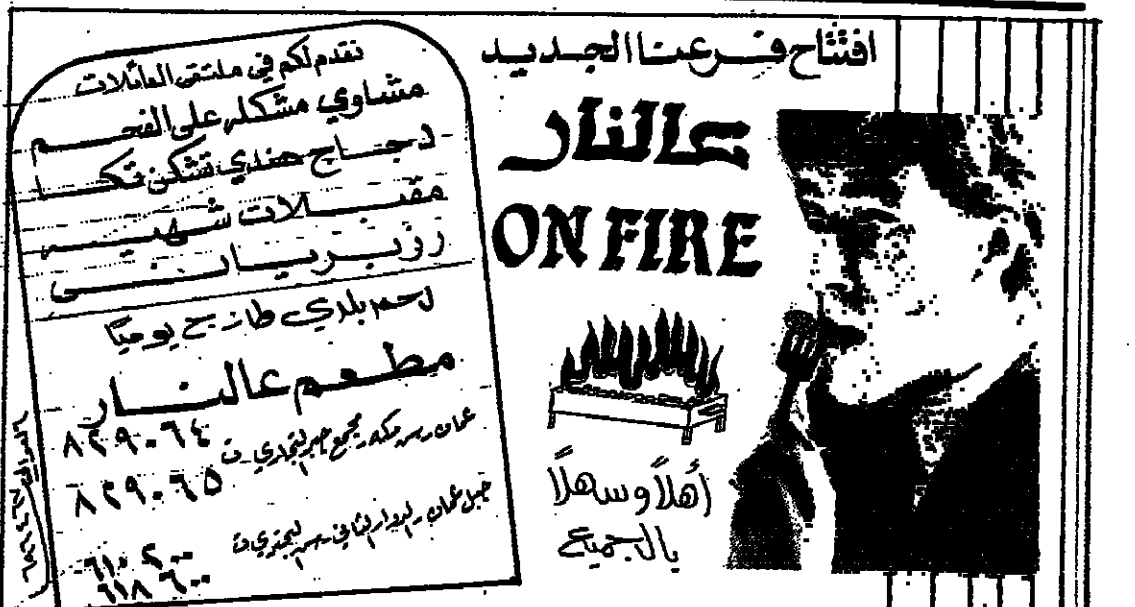 افتتاح فرعنا الجديد
عالنار
ON FIRE
أهلاً وسهلاً
بالجميع
نقدم لكم في ملتقى العائلات
مشاوي مشكله على الفحم
دجاج هندي تشكن تكا
مقبلات شهيه
رز برياني
لحم بلدي طازج يومياً
مطعم عالنار
عمان مجمع جبر التجاري ت ٨٢٩٠٦٤
٨٢٩٠٦٥
جبل عمان الدوار الثاني البحتري ت
٦١٠٢٠٠
٦١٨٦٠٠